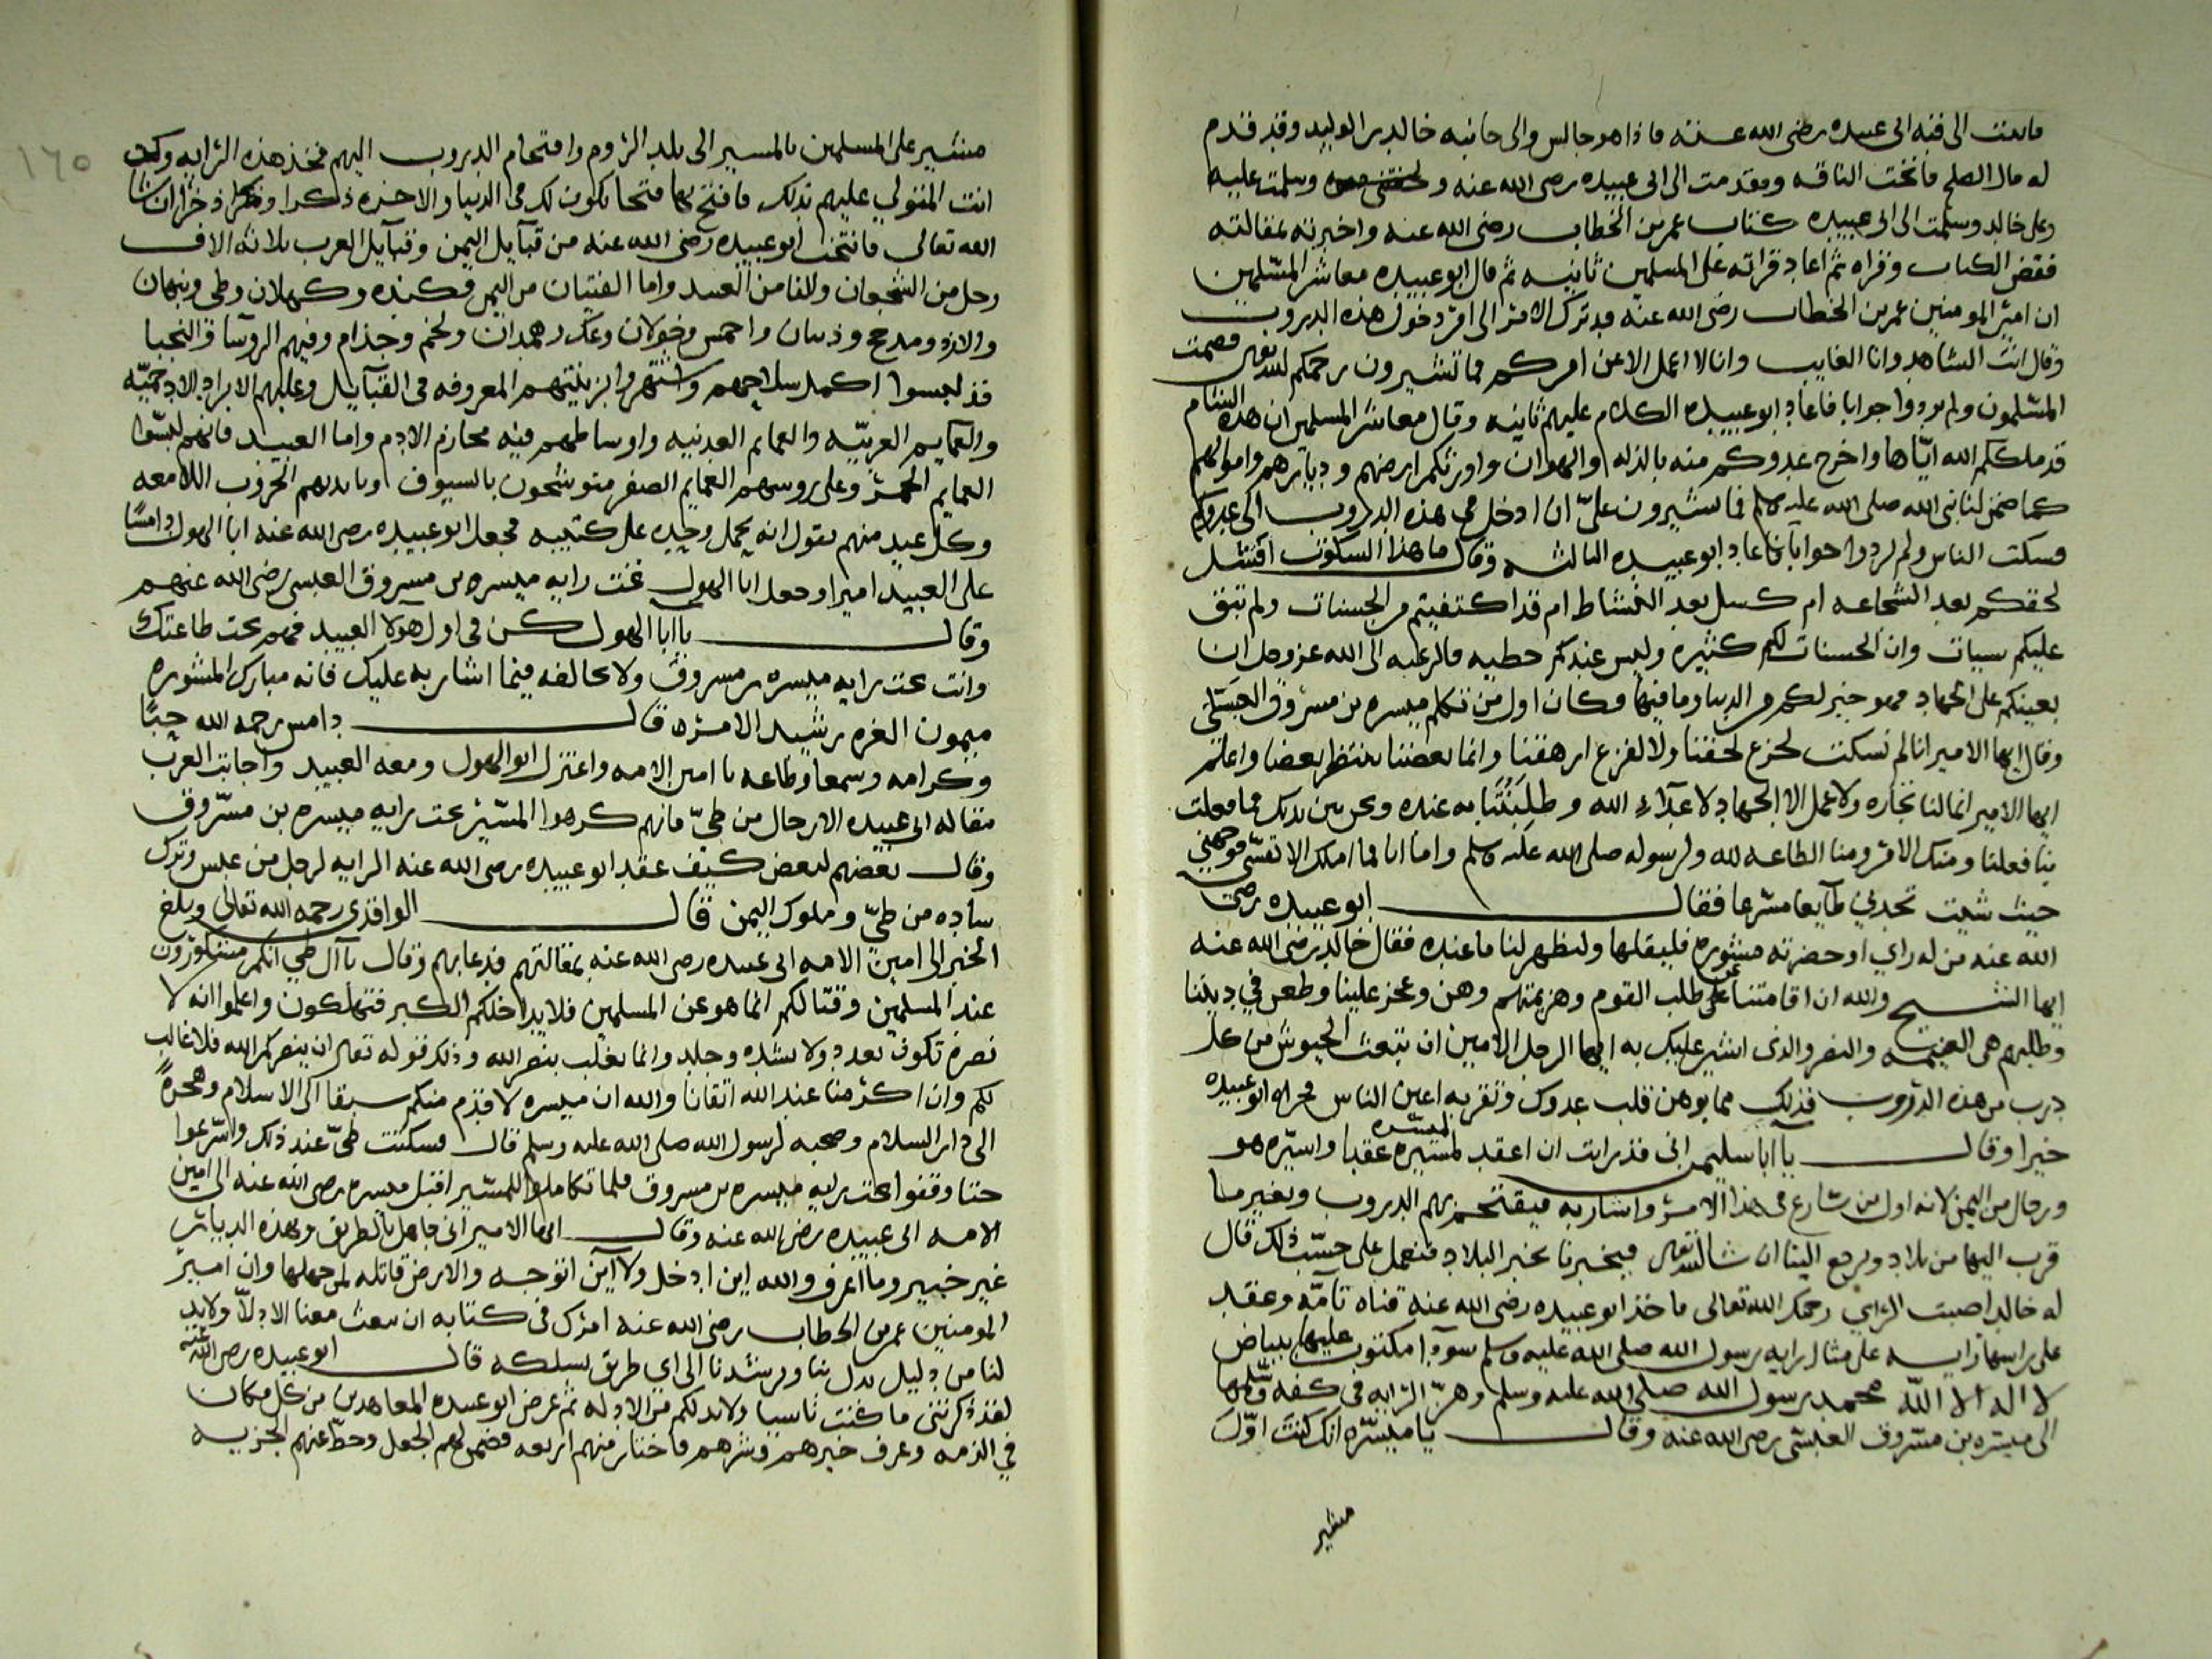 فاتيت الى قبة ابى عبيده رضى الله عنه فاذا هو جالس والى جانبه خالد بن الوليد وقد قدم
له مال الصلح فانخت الناقه وتقدمت الى ابى عبيده رضى الله عنه وسلمت عليه
وعلى خالد وسلمت الى ابى عبيده كتاب عمر بن الخطاب رضى الله عنه واخبرته بمقالته
ففض الكتاب وقراه ثم اعاد قراته على المسلمين ثانيه ثم قال ابو عبيده معاشر المسلمين
ان امير المومنين عمر بن الخطاب رضى الله عنه قد ترك الامر الى امر دخول هذه الدروب
وقال انت الشاهد وانا الغايب وانا لا اعمل الا عن امركم فما تشيرون رحمكم الله تعالى فصمت
المسلمون ولم يردوا جوابا فاعاد ابو عبيده الكلام عليهم ثانيه وقال معاشر المسلمين ان هذه الشام
قد ملككم الله اياها واخرج عدوكم منه بالذله والهوان واورثكم ارضهم وديارهم واموالهم
كما ضمن لنا نبى الله صلى الله عليه وسلم فما تشيرون على ان ادخل فى هذه الدروب الى عدوكم
فسكت الناس ولم يردوا جوابا فاعاد ابو عبيده الثالثه وقال ما هذا السكوت افشل
لحقكم بعد الشجاعه ام كسل بعد النشاط ام قد اكتفيتم من الحسنات ولم تبق
عليكم سيات وان الحسنات لكم كثيره وليس عندكم خطيه فالرغبه الى الله عز وجل ان
يعينكم على الجهاد فهو خير لكم من الدنيا وما فيها وكان اول من تكلم ميسره بن مسروق العبسى
وقال ايها الامير انا لم نسكت لجزع لحقنا ولا لفزع ارهقنا وانما بعضنا ينتظر بعضا واعلم
ايها الامير انما لنا تجاره ولا عمل الا الجهاد لاعداء الله وطلبتنا به عنده ونحن بين يديك فما فعلت
بنا فعلنا ومنك الامر ومنا الطاعه لله ولرسوله صلى الله عليه وسلم واما انا فما املك الا نفسى فوجهنى
حيث شيت تجدنى طايعا مسرعا فقال ابو عبيده رضى
الله عنه من له راي او حضرته مشوره فليقلها وليظهر لنا ما عنده فقال خالد رضى الله عنه
ايها الشيخ والله ان اقامتنا عن طلب القوم وهزيمتهم وهن وعجز علينا وطعن في ديننا
وطلبهم هى الغنيمه والنصر والذى اشير عليك به ايها الرجل الامين ان تبعث الجيوش من كل
درب من هذه الدروب فذلك مما يوهن قلب عدوك وتقر به اعين الناس فجزاه ابو عبيده
خيرا وقال يا ابا سليمن انى قد رايت ان اعقد لميسره عقدا واسيره هو
ورجال من اليمن لانه اول من شارع فى هذا الامر واشار به فيقتحم بهم الدروب ويغير ما
قرب اليها من بلاد ويرجع الينا ان شا الله تعالى فيخبرنا بخبر البلاد فنعمل على حسب ذلك قال
له خالد اصبت الراي رحمك الله تعالى فاخذ ابو عبيده رضى الله عنه قناه تامه وعقد
على راسها رايه على مثال رايه رسول الله صلى الله عليه وسلم سودا مكتوب عليها ببياض
لا اله الا الله محمد رسول الله صلى الله عليه وسلم وهز الرايه فى كفه وسلمها
الى ميسره بن مسروق العبسى رضى الله عنه وقال يا ميسره انك كنت اول
مشير
١٦٥
مشير على المسلمين بالمسير الى بلد الروم واقتحام الدروب اليهم فخذ هذه الرايه وكن
انت المتولي عليهم بذلك فافتح بها فتحا يكون لك فى الدنيا والاخره ذكرا وذخرا ان شا
الله تعالى فانتخب ابو عبيده رضى الله عنه من قبايل اليمن وقبايل العرب ثلاثه الاف
رجل من الشجعان والفا من العبيد واما الفتيان من اليمن فكنده وكهلان وطى ونبهان
والازد ومدحج وذبيان واحمس وخولان وعك وهمدان ولخم وجذام وفيهم الروسا والنجبا
قد لبسوا اكمل سلاحهم واشتهروا بزينتهم المعروفه فى القبايل وعليهم الابراد الادحميه
والعمايم العربيه والعمايم العدنيه واوساطهم فيه محازم الادم واما العبيد فانهم لبسوا
العمايم الحمر وعلى روسهم العمايم الصفر متوشحون بالسيوف وبايديهم الحروب اللامعه
وكل عبد منهم يقول انه يحمل وحده على كتيبه فجعل ابو عبيده رضى الله عنه ابا الهول دامسا
على العبيد اميرا وجعل ابا الهول تحت رايه ميسره بن مسروق العبسى رضى الله عنهم
وقال يا ابا الهول كن فى اول هولا العبيد فهم تحت طاعتك
وانت تحت رايه ميسره بن مسروق ولا تخالفه فيما اشار به عليك فانه مبارك المشوره
ميمون الغره رشيد الامره قال دامس رحمه الله حبا
وكرامه وسمعا وطاعه يا امين الامه واعتزل ابو الهول ومعه العبيد واجابت العرب
مقاله ابى عبيده الا رجال من طى فانهم كرهوا المسير تحت رايه ميسره بن مسروق
وقال بعضهم لبعض كيف عقد ابو عبيده رضى الله عنه الرايه لرجل من عبس وترك
ساده من طى وملوك اليمن قال الواقدى رحمه الله تعالى وبلغ
الخبر الى امين الامه ابى عبيده رضى الله عنه بمقالتهم فدعا بهم وقال يا آل طي انكم مشكورون
عند المسلمين وقتالكم انما هو عن المسلمين فلا يداخلكم الكبر فتهلكون واعلموا انه لا
نصره تكون بعدد ولا بشده وجلد وانما يغلب بنصر الله وذلك قوله تعالى ان ينصركم الله فلا غالب
لكم وان اكرمنا عند الله اتقانا والله ان ميسره لاقدم منكم سبقا الى الاسلام وهجرة
الى دار السلام وصحبه لرسول الله صلى الله عليه وسلم قال فسكتت طى عند ذلك واسرعوا
حتا وقفوا تحت رايه ميسره بن مسروق فلما تكاملوا للمسير اقبل ميسره رضى الله عنه الى امين
الامه ابى عبيده رضى الله عنه وقال ايها الامير انى جاهل بالطريق وبهذه الديار
غير خبير وما اعرف والله اين ادخل ولا اين اتوجه والارض قاتله لمن جهلها وان امير
المومنين عمر بن الخطاب رضى الله عنه امرك فى كتابه ان تبعث معنا الادلا ولابد
لنا من دليل يدل بنا ويرشدنا الى اى طريق نسلكه قال ابو عبيده رضى الله عنه
لقد ذكرتنى ما كنت ناسيا ولابد لكم من الادله ثم عرض ابو عبيده المعاهدين من كل مكان
في الذمه وعرف خيرهم وشرهم فاختار منهم اربعه فضمن لهم الجعل وحط عنهم الجزيه